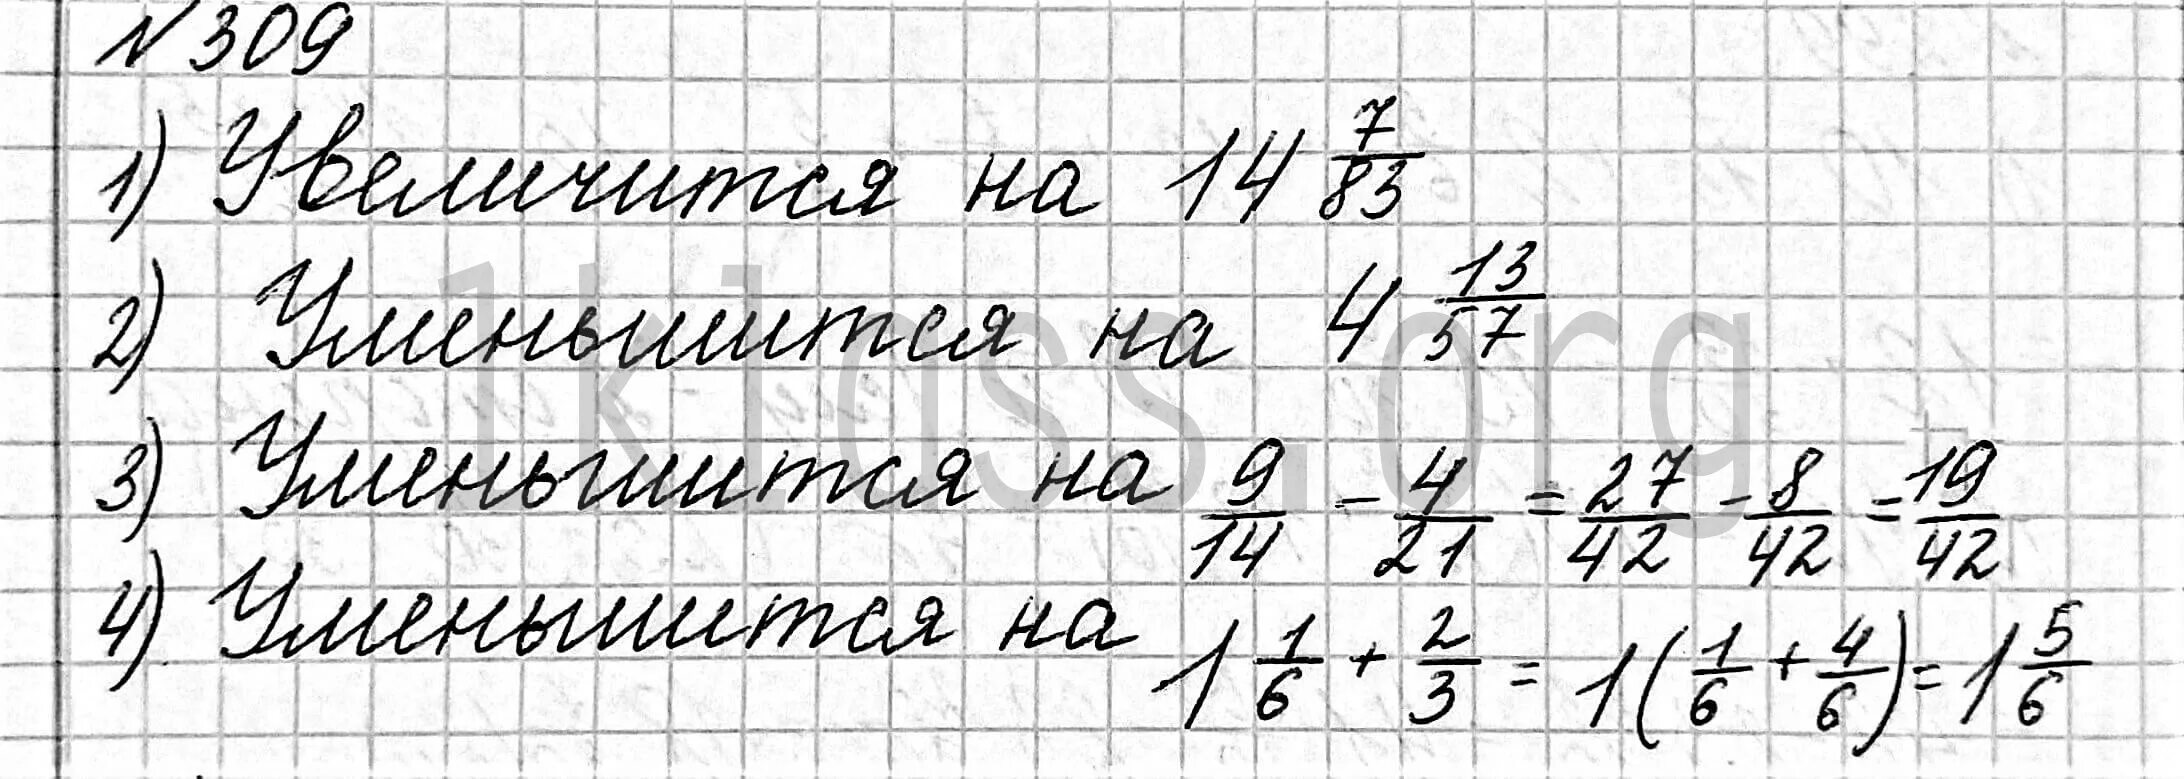 №309
1) Увеличится на 14 7/83
2) Уменьшится на 4 13/57
3) Уменьшится на 9/14 - 4/21 = 27/42 - 8/42 = 19/42
4) Уменьшится на 1 1/6 + 2/3 = 1(1/6 + 4/6) = 1 5/6
1klass.org